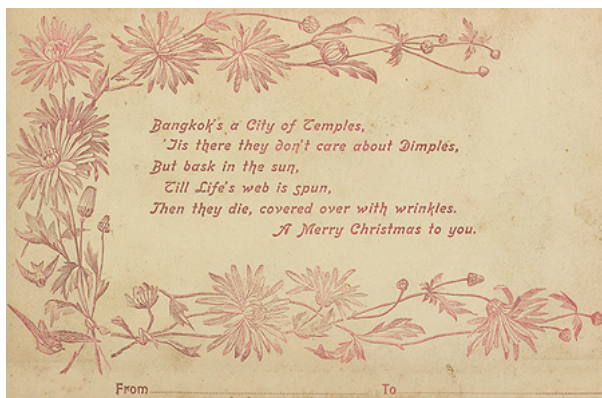 Bangkok's a City of Temples,
'Tis there they don't care about Dimples,
But bask in the sun,
Till Life's web is spun,
Then they die, covered over with wrinkles.
A Merry Christmas to you.
From To